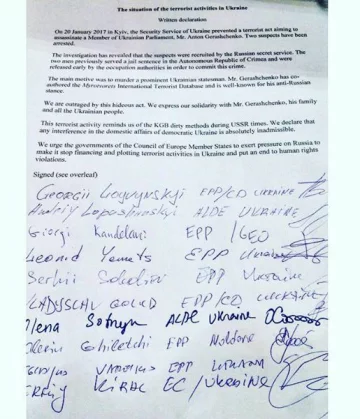 The situation of the terrorist activities in Ukraine
Written declaration
On 20 January 2017 in Kyiv, the Security Service of Ukraine prevented a terrorist act aiming to
assassinate a Member of Ukrainian Parliament, Mr. Anton Gerashchenko. Two suspects have been
arrested.
The investigation has revealed that the suspects were recruited by the Russian secret service. The
two men previously served a jail sentence in the Autonomous Republic of Crimea and were
released early by the occupation authorities in order to commit this crime.
The main motive was to murder a prominent Ukrainian statesman. Mr. Gerashchenko has co-
authored the Myrotvorets International Terrorist Database and is well-known for his anti-Russian
stance.
We are outraged by this hideous act. We express our solidarity with Mr. Gerashchenko, his family
and all the Ukrainian people.
This terrorist activity reminds us of the KGB dirty methods during USSR times. We declare that
any interference in the domestic affairs of democratic Ukraine is absolutely inadmissible.
We urge the governments of the Council of Europe Member States to exert pressure on Russia to
make it stop financing and plotting terrorist activities in Ukraine and put an end to human rights
violations.
Signed (see overleaf)
Georgii Logvynskyi EPP/CD UKRAINE
Andriy ALDE UKRAINE
Giorgi Kandelaki EPP /GEO
Leonid Yemets EPP Ukraine
Serhii EPP Ukraine
EPP/CD UKRAINE
Olena Sotnyk ALDE Ukraine
Ghiletchi EPP Moldova
EPP
Kiral EC/Ukraine